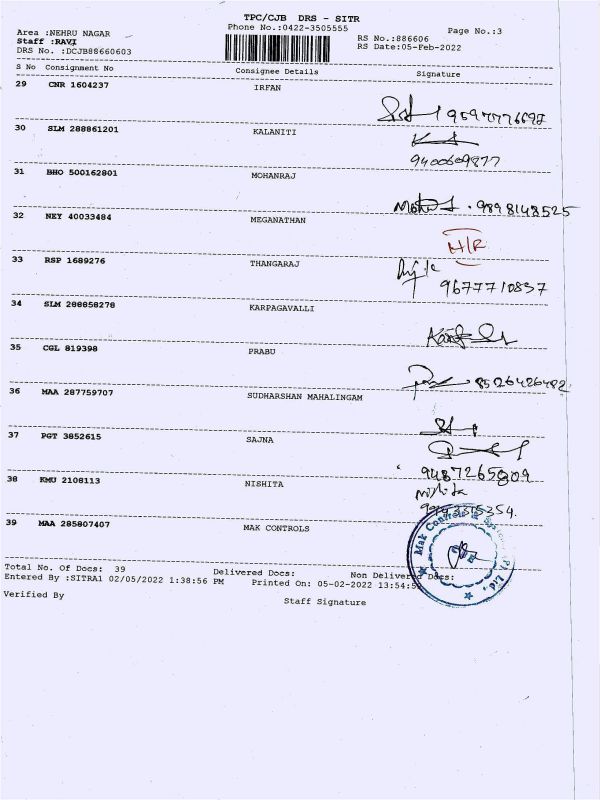 TPC/CJB DRS - SITR
Area :NEHRU NAGAR Phone No.:0422-3505555 Page No.:3
Staff :RAVI RS No.:886606
DRS No. :DCJB88660603 RS Date:05-Feb-2022
S No Consignment No Consignee Details Signature
29 CNR 1604237 IRFAN
30 SLM 288861201 KALANITI
9400609877
31 BHO 500162801 MOHANRAJ
9898148525
32 NEY 40033484 MEGANATHAN
N/R
33 RSP 1689276 THANGARAJ
9677710837
34 SLM 288858278 KARPAGAVALLI
35 CGL 819398 PRABU
8526426482
36 MAA 287759707 SUDHARSHAN MAHALINGAM
37 PGT 3852615 SAJNA
9487265809
38 KMU 2108113 NISHITA
39 MAA 285807407 MAK CONTROLS
Mak Controls & Systems (P) Ltd.,
Total No. Of Docs: 39 Delivered Docs: Non Delivered Docs:
Entered By :SITRA1 02/05/2022 1:38:56 PM Printed On: 05-02-2022 13:54:5
Verified By Staff Signature